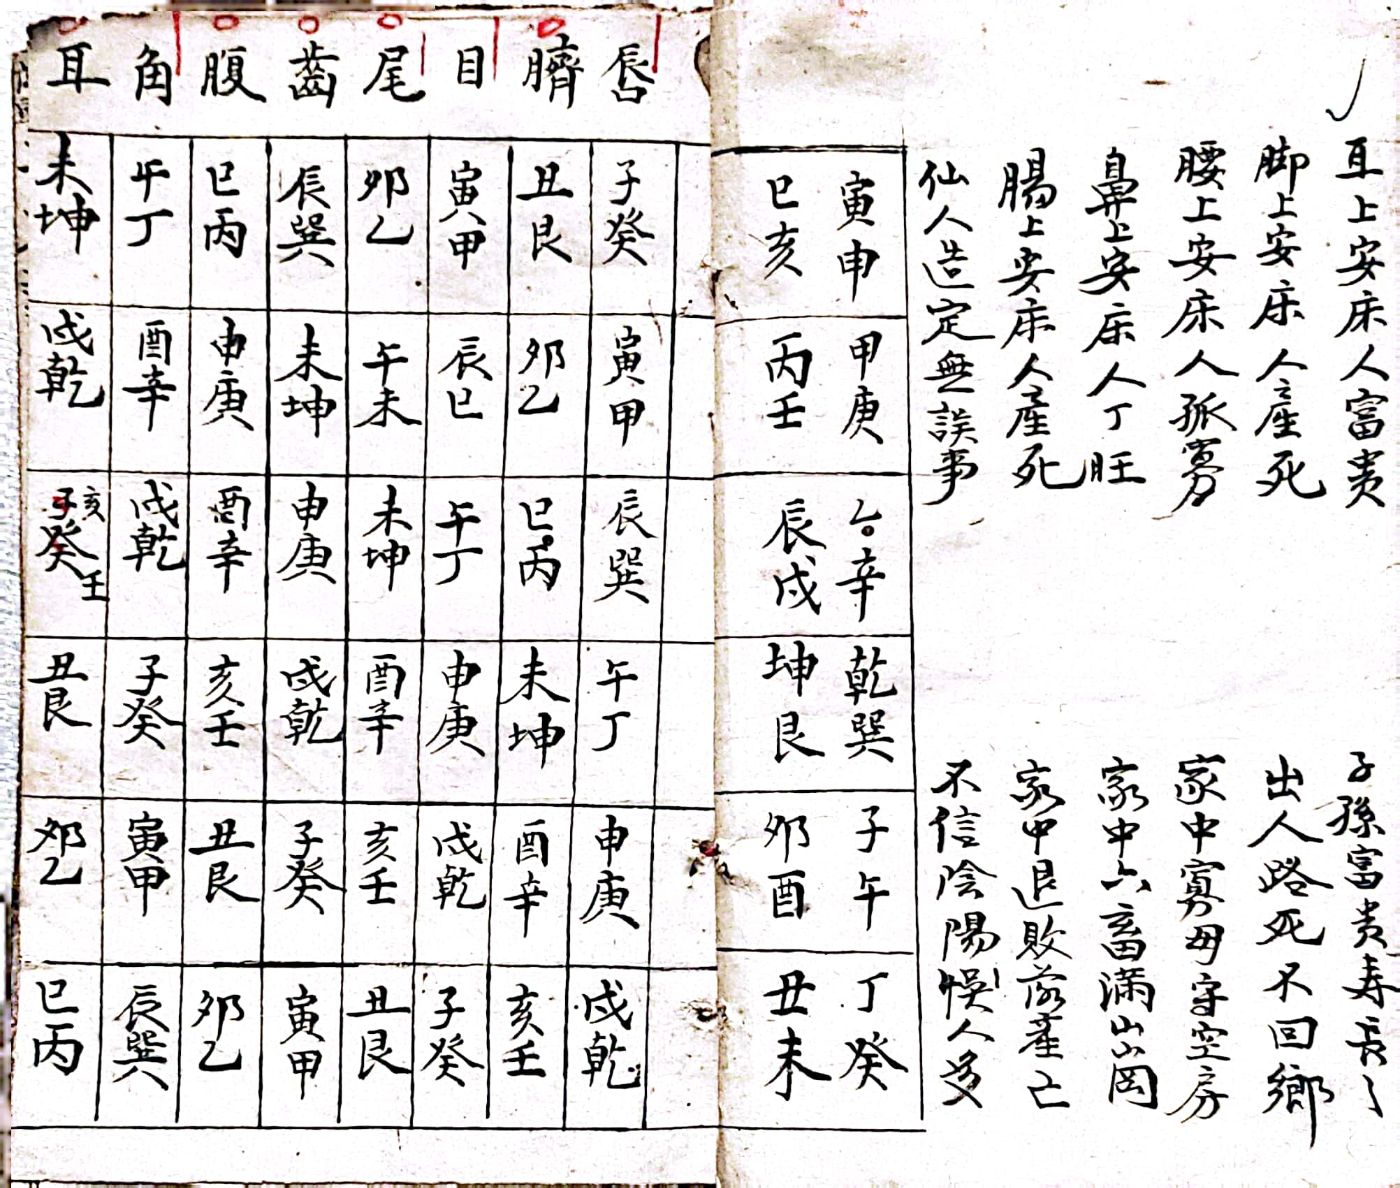 耳上安床人富贵
子孫富贵寿長
脚上安床人産死
出人路死不回鄉
腰上安床人孤寡
家中寡母守空房
鼻上安床人丁旺
家中六畜满山岡
腸上安床人産死
家中退敗落産亡
仙人造定無誤事
不信陰陽悮人
寅申 甲庚 辛 乾巽 子午 丁癸
巳亥 丙壬 辰戌 坤艮 卯酉 丑未
唇 子癸 寅甲 辰巽 午丁 申庚 戌乾
臍 丑艮 卯乙 巳丙 未坤 酉辛 亥壬
目 寅甲 辰巳 午丁 申庚 戌乾 子癸
尾 卯乙 午未 未坤 酉辛 亥壬 丑艮
齒 辰巽 未坤 申庚 戌乾 子癸 寅甲
腹 巳丙 申庚 酉辛 亥壬 丑艮 卯乙
角 午丁 酉辛 戌乾 子癸 寅甲 辰巽
耳 未坤 戌乾 亥子癸壬 丑艮 卯乙 巳丙